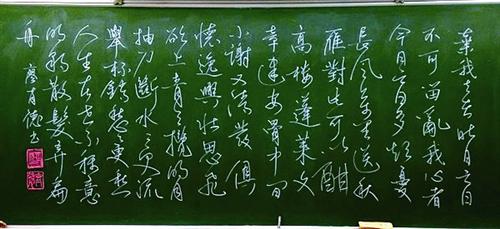 棄我去者昨日之日
不可留亂我心者
今日之日多煩憂
長風萬里送秋
雁對此可以酣
高樓蓬萊文
章建安骨中間
小謝又清發俱
懷逸興壯思飛
欲上青天攬明月
抽刀斷水水更流
舉杯銷愁愁更愁
人生在世不稱意
明朝散髮弄扁
舟